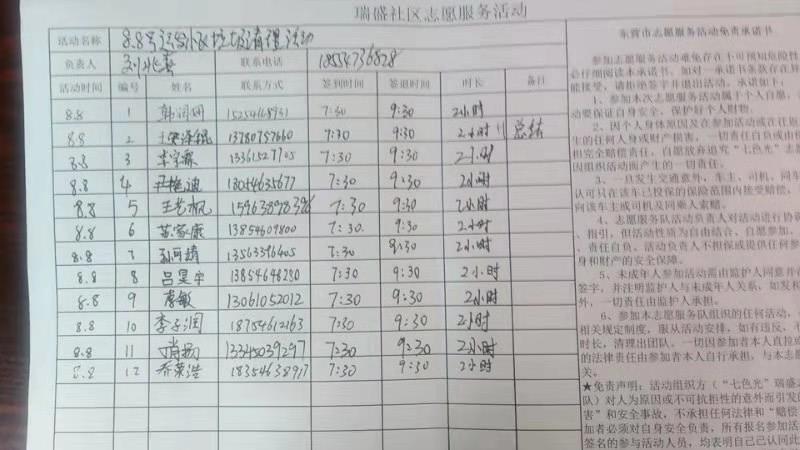 瑞盛社区志愿服务活动
活动名称 8.8号运给小区垃圾清理活动
负责人 联系电话 18554736828
活动时间 编号 姓名 联系方式 签到时间 签退时间 时长 备注
8.8 1 韩润 7:30 9:30 2小时
8.8 2 13780757660 7:30 9:30 2小时 总结
8.8 3 李宇霖 13361527705 7:30 9:30 2小时
8.8 4 13054635677 7:30 9:30 2小时
8.8 5 王艺枫 15963898396 7:30 9:30 2小时
8.8 6 苏家康 13854609800 7:30 9:30 2小时
8.8 7 孙可靖 13563396405 7:30 9:30 2小时
8.8 8 吕昊宇 13854648280 7:30 9:30 2小时
8.8 9 李敏 13061052012 7:30 9:30 2小时
8.8 10 李子润 18754612163 7:30 9:30 2小时
8.8 11 肖扬 13345039297 7:30 9:30 2小时
8.8 12 乔荣浩 18354638917 7:30 9:30 2小时
东营市志愿服务活动免责承诺书
参加志愿服务活动难免存在不可预知危险性
必仔细阅读本承诺书。如对一承诺书条款存在异
能接受，请拒绝签字并退出活动。承诺如下：
1、参加本次志愿服务活动属于个人自愿，
动要保证自身安全，保护好个人财物。
2、因个人身体原因及在参加活动或在往返
生的任何人身或财产损害，一切责任自负或由
担完全赔偿责任。自愿放弃追究“七色光”志愿
因组织活动而产生的一切责任。
一旦发生交通意外，车主、司机、同车
认可只在该车已投保的保险范围内接受赔偿，
向该车主或司机及同乘人索赔。
4、志愿服务队活动负责人对活动进行协调
、指引，但活动性质为自由结合、自愿参加、
、责任自负。活动负责人不担保或提供任何参
身和财产的安全保障。
5、未成年人参加活动需由监护人同意并
签字，并注明监护人与未成年人关系，如发
外，一切责任由监护人承担。
6、参加本志愿服务队组织的任何活动，
相关规定制度，服从活动安排，如有违反，不
时长，清理出团队。一切因参加者本人直接或
的法律责任由参加者本人自行承担，与本志愿
关。
★免责声明：活动组织方（“七色光”瑞盛
队）对人为原因或不可抗拒性的意外而引发的
害”和安全事故，不承担任何法律和“赔偿
加者必须对自身安全负责，所有报名参加活动
签名的参与活动人员，均表明自己已认同此